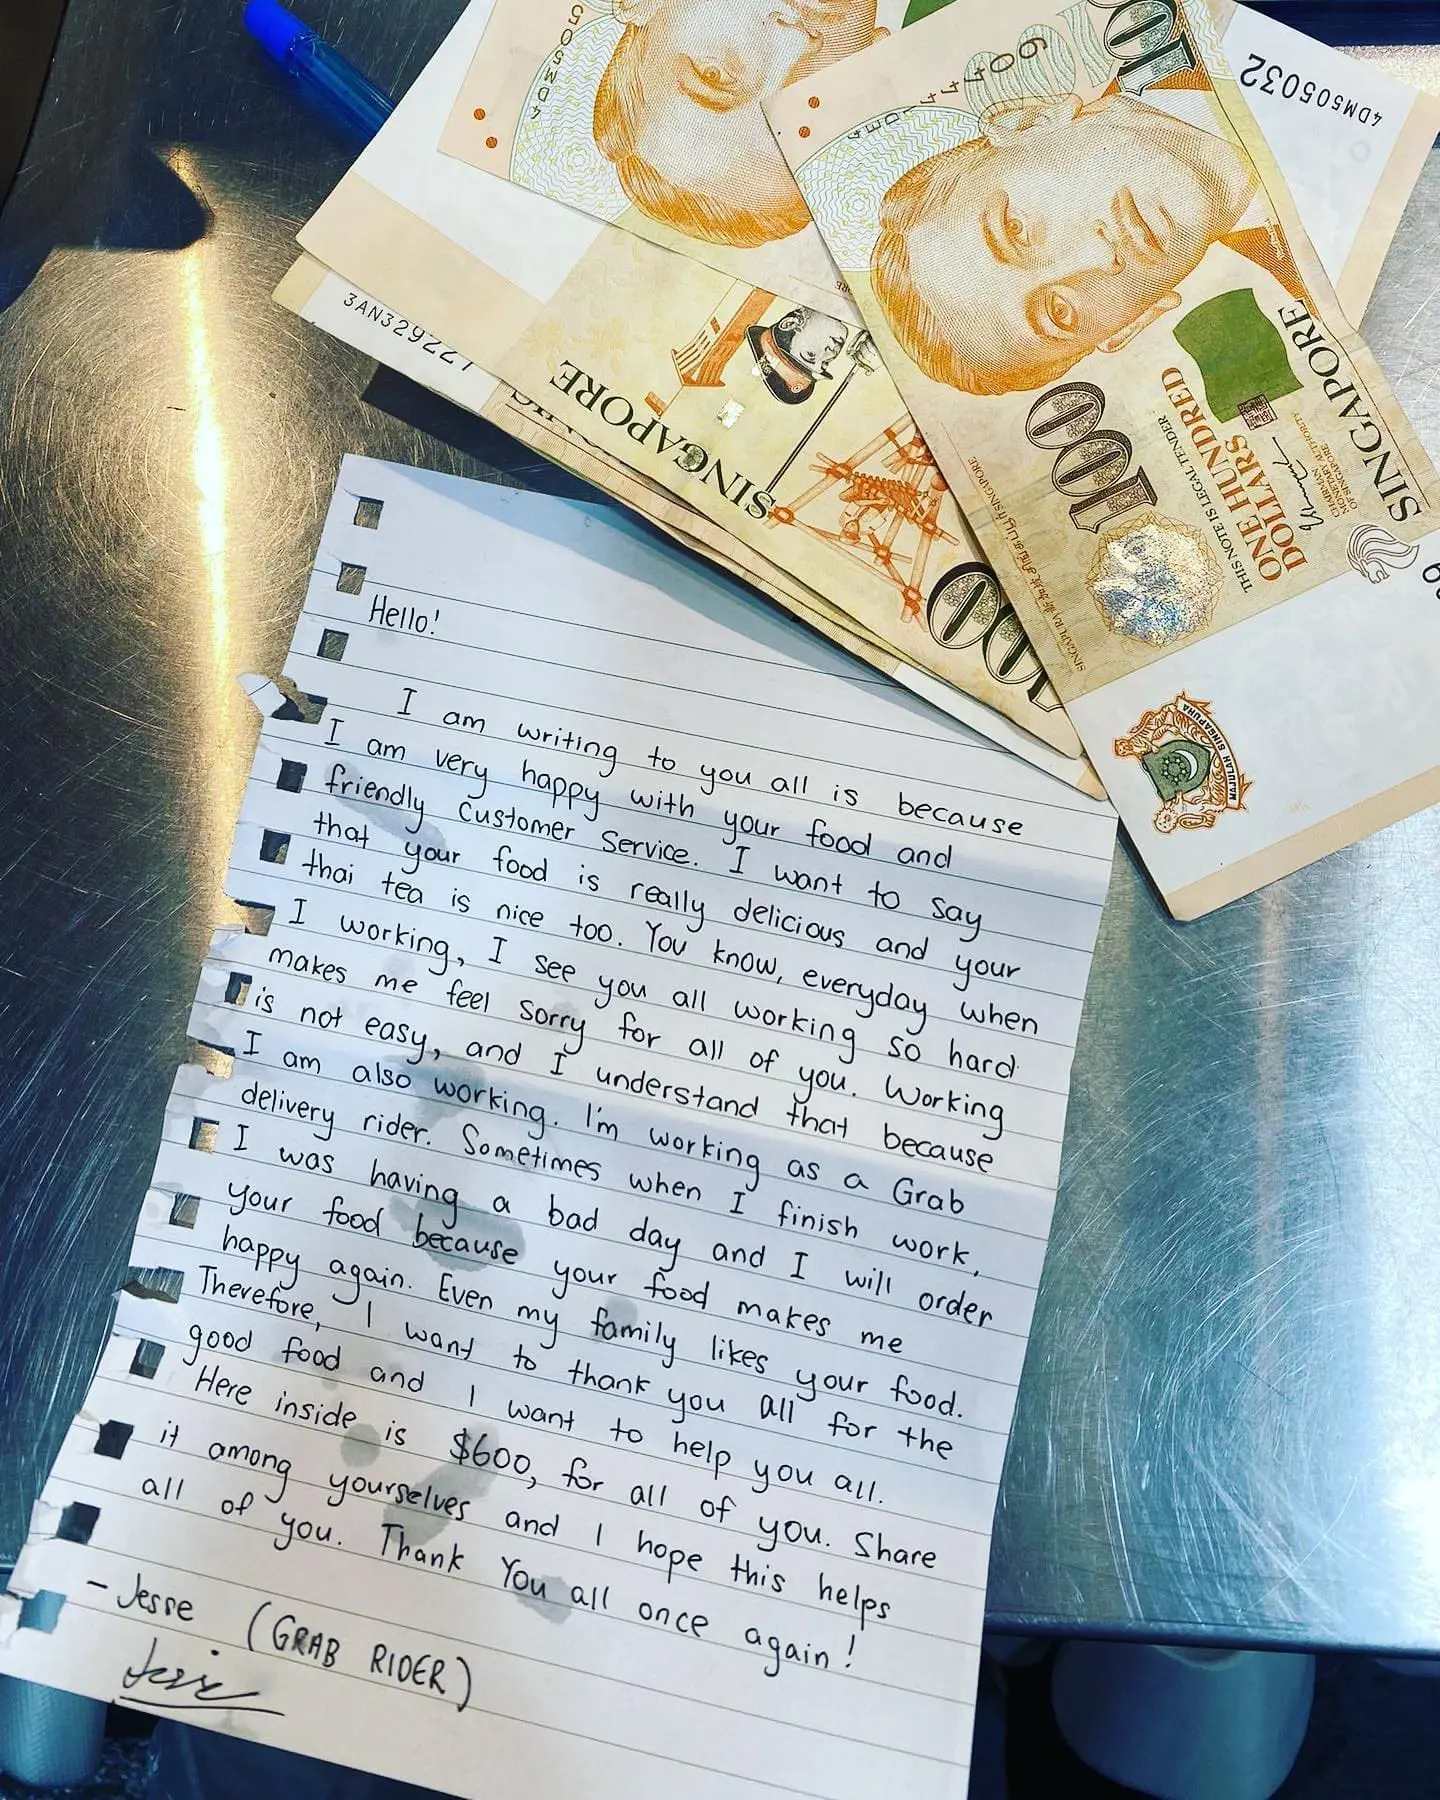 4DM505032
4DM505
4DE444
60
100
SINGAPORE
3AN329227
SINGAPORE
SINGAPORE
100
100
THIS NOTE IS LEGAL TENDER
ONE HUNDRED
DOLLARS
CHAIRMAN
MONETARY AUTHORITY
OF SINGAPORE
SINGAPORE
SINGAPURA 新加坡
SINGAPORE
MAJULAH SINGAPURA
Hello!
I am writing to you all is because
I am very happy with your food and
friendly customer service. I want to say
that your food is really delicious and your
thai tea is nice too. You know, everyday when
I working, I see you all working so hard
makes me feel sorry for all of you. Working
is not easy, and I understand that because
I am also working. I'm working as a Grab
delivery rider. Sometimes when I finish work,
I was having a bad day and I will order
your food because your food makes me
happy again. Even my family likes your food.
Therefore, I want to thank you all for the
good food and I want to help you all.
Here inside is $600, for all of you. Share
it among yourselves and I hope this helps
all of you. Thank You all once again!
- Jesse (GRAB RIDER)